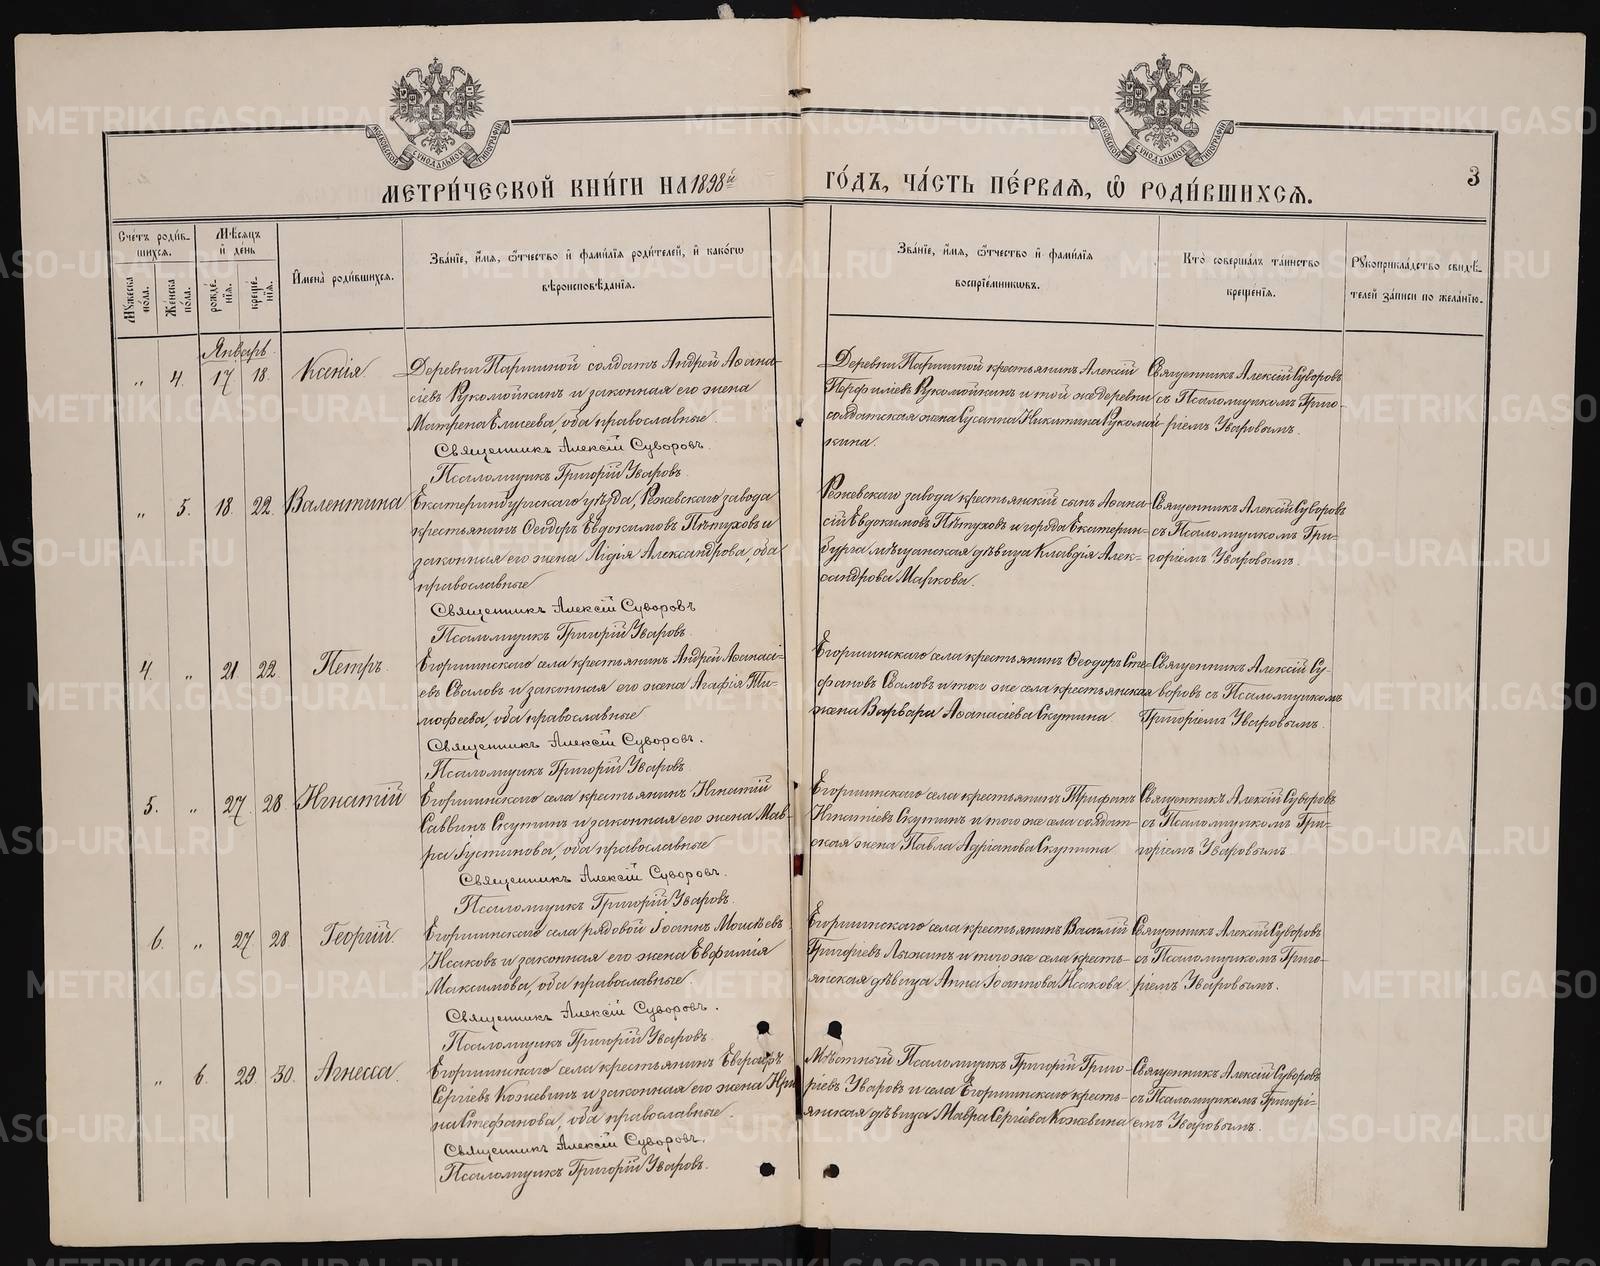 МЕТРИ́ЧЕСКОЙ КНИ́ГИ НА 1898й
ГО́ДЪ, ЧА́СТЬ ПЕ́РВАѦ, Ѽ РОДИ́ВШИХСѦ.
3
Сче́тъ роди́в-
шихся.
Мѣ́сяцъ
и҆ де́нь
Мꙋ́жеска по́ла.
Же́нска по́ла.
рожде́-
нїя.
креще́-
нїя.
И҆мена̀ роди́вшихся.
Зва́нїе, и҆́мя, ѻ҆́тчество и҆ фами́лїя роди́телей, и҆ како́гѡ
вѣроисповѣ́данїя.
Зва́нїе, и҆́мя, ѻ҆́тчество и҆ фами́лїя
воспрїе́мниковъ.
Кто̀ соверша́лъ та́инство
креще́нїя.
Рꙋкоприкла́дство свидѣ́-
телей за́писи по жела́нїю.
Январь
„ 4. 17 18. Ксенія
Деревни Паршиной солдатъ Андрей Аѳана-
сіевъ Рукомойкинъ и законная его жена
Матрена Елисеева, оба православные.
Священникъ Алексій Суворовъ.
Псаломщикъ Григорій Уваровъ.
Деревни Паршиной крестьянинъ Алексій
Порфиліевъ Рукомойкинъ и той же деревни
солдатская жена Сусанна Никитина Рукомой-
кина.
Священникъ Алексій Суворовъ
съ Псаломщикомъ Григо-
ріемъ Уваровымъ.
„ 5. 18. 22. Валентина
Екатеринбургскаго уѣзда, Режевскаго завода
крестьянинъ Ѳеодоръ Евдокимовъ Пѣтуховъ и
законная его жена Лидія Александрова, оба
православные
Священникъ Алексій Суворовъ
Псаломщикъ Григорій Уваровъ.
Режевскаго завода крестьянскій сынъ Аѳана-
сій Евдокимовъ Пѣтуховъ и города Екатерин-
бурга мѣщанская дѣвица Клавдія Алек-
сандрова Маркова.
Священникъ Алексій Суворовъ
съ Псаломщикомъ Гри-
горіемъ Уваровымъ.
4. „ 21 22. Петръ.
Егоршинскаго села крестьянинъ Андрей Аѳанасі-
евъ Сваловъ и законная его жена Агафія Ти-
мофеева, оба православные
Священникъ Алексій Суворовъ.
Псаломщикъ Григорій Уваровъ.
Егоршинскаго села крестьянинъ Ѳеодоръ Сте-
фановъ Сваловъ и того же села крестьянская
жена Варвара Аѳанасіева Скутина
Священникъ Алексій Су-
воровъ съ Псаломщикомъ
Григоріемъ Уваровымъ.
5. „ 27 28 Игнатій
Егоршинскаго села крестьянинъ Игнатій
Саввинъ Скутинъ и законная его жена Мав-
ра Іустинова, оба православные
Священникъ Алексій Суворовъ.
Псаломщикъ Григорій Уваровъ.
Егоршинскаго села крестьянинъ Трифонъ
Игнатіевъ Скутинъ и того же села солдат-
ская жена Павла Адріанова Скутина
Священникъ Алексій Суворовъ
съ Псаломщикомъ Гри-
горіемъ Уваровымъ
6. „ 27 28 Георгій.
Егоршинскаго села рядовой Іоаннъ Моисѣевъ
Исаковъ и законная его жена Евфимія
Максимова, оба православные.
Священникъ Алексій Суворовъ.
Псаломщикъ Григорій Уваровъ.
Егоршинскаго села крестьянинъ Василій
Григоріевъ Лыжинъ и того же села кресть-
янская дѣвица Анна Іоаннова Исакова
Священникъ Алексій Суворовъ
съ Псаломщикомъ Григо-
ріемъ Уваровымъ.
„ 6. 29. 30. Агнесса.
Егоршинскаго села крестьянинъ Евграфъ
Сергіевъ Кожевинъ и законная его жена Ири-
на Стефанова, оба православные.
Священникъ Алексій Суворовъ.
Псаломщикъ Григорій Уваровъ.
Мѣстный Псаломщикъ Григорій Григо-
ріевъ Уваровъ и села Егоршинскаго кресть-
янская дѣвица Мавра Сергіева Кожевина
Священникъ Алексій Суворовъ
съ Псаломщикомъ Григорі-
емъ Уваровымъ.
METRIKI.GASO-URAL.RU